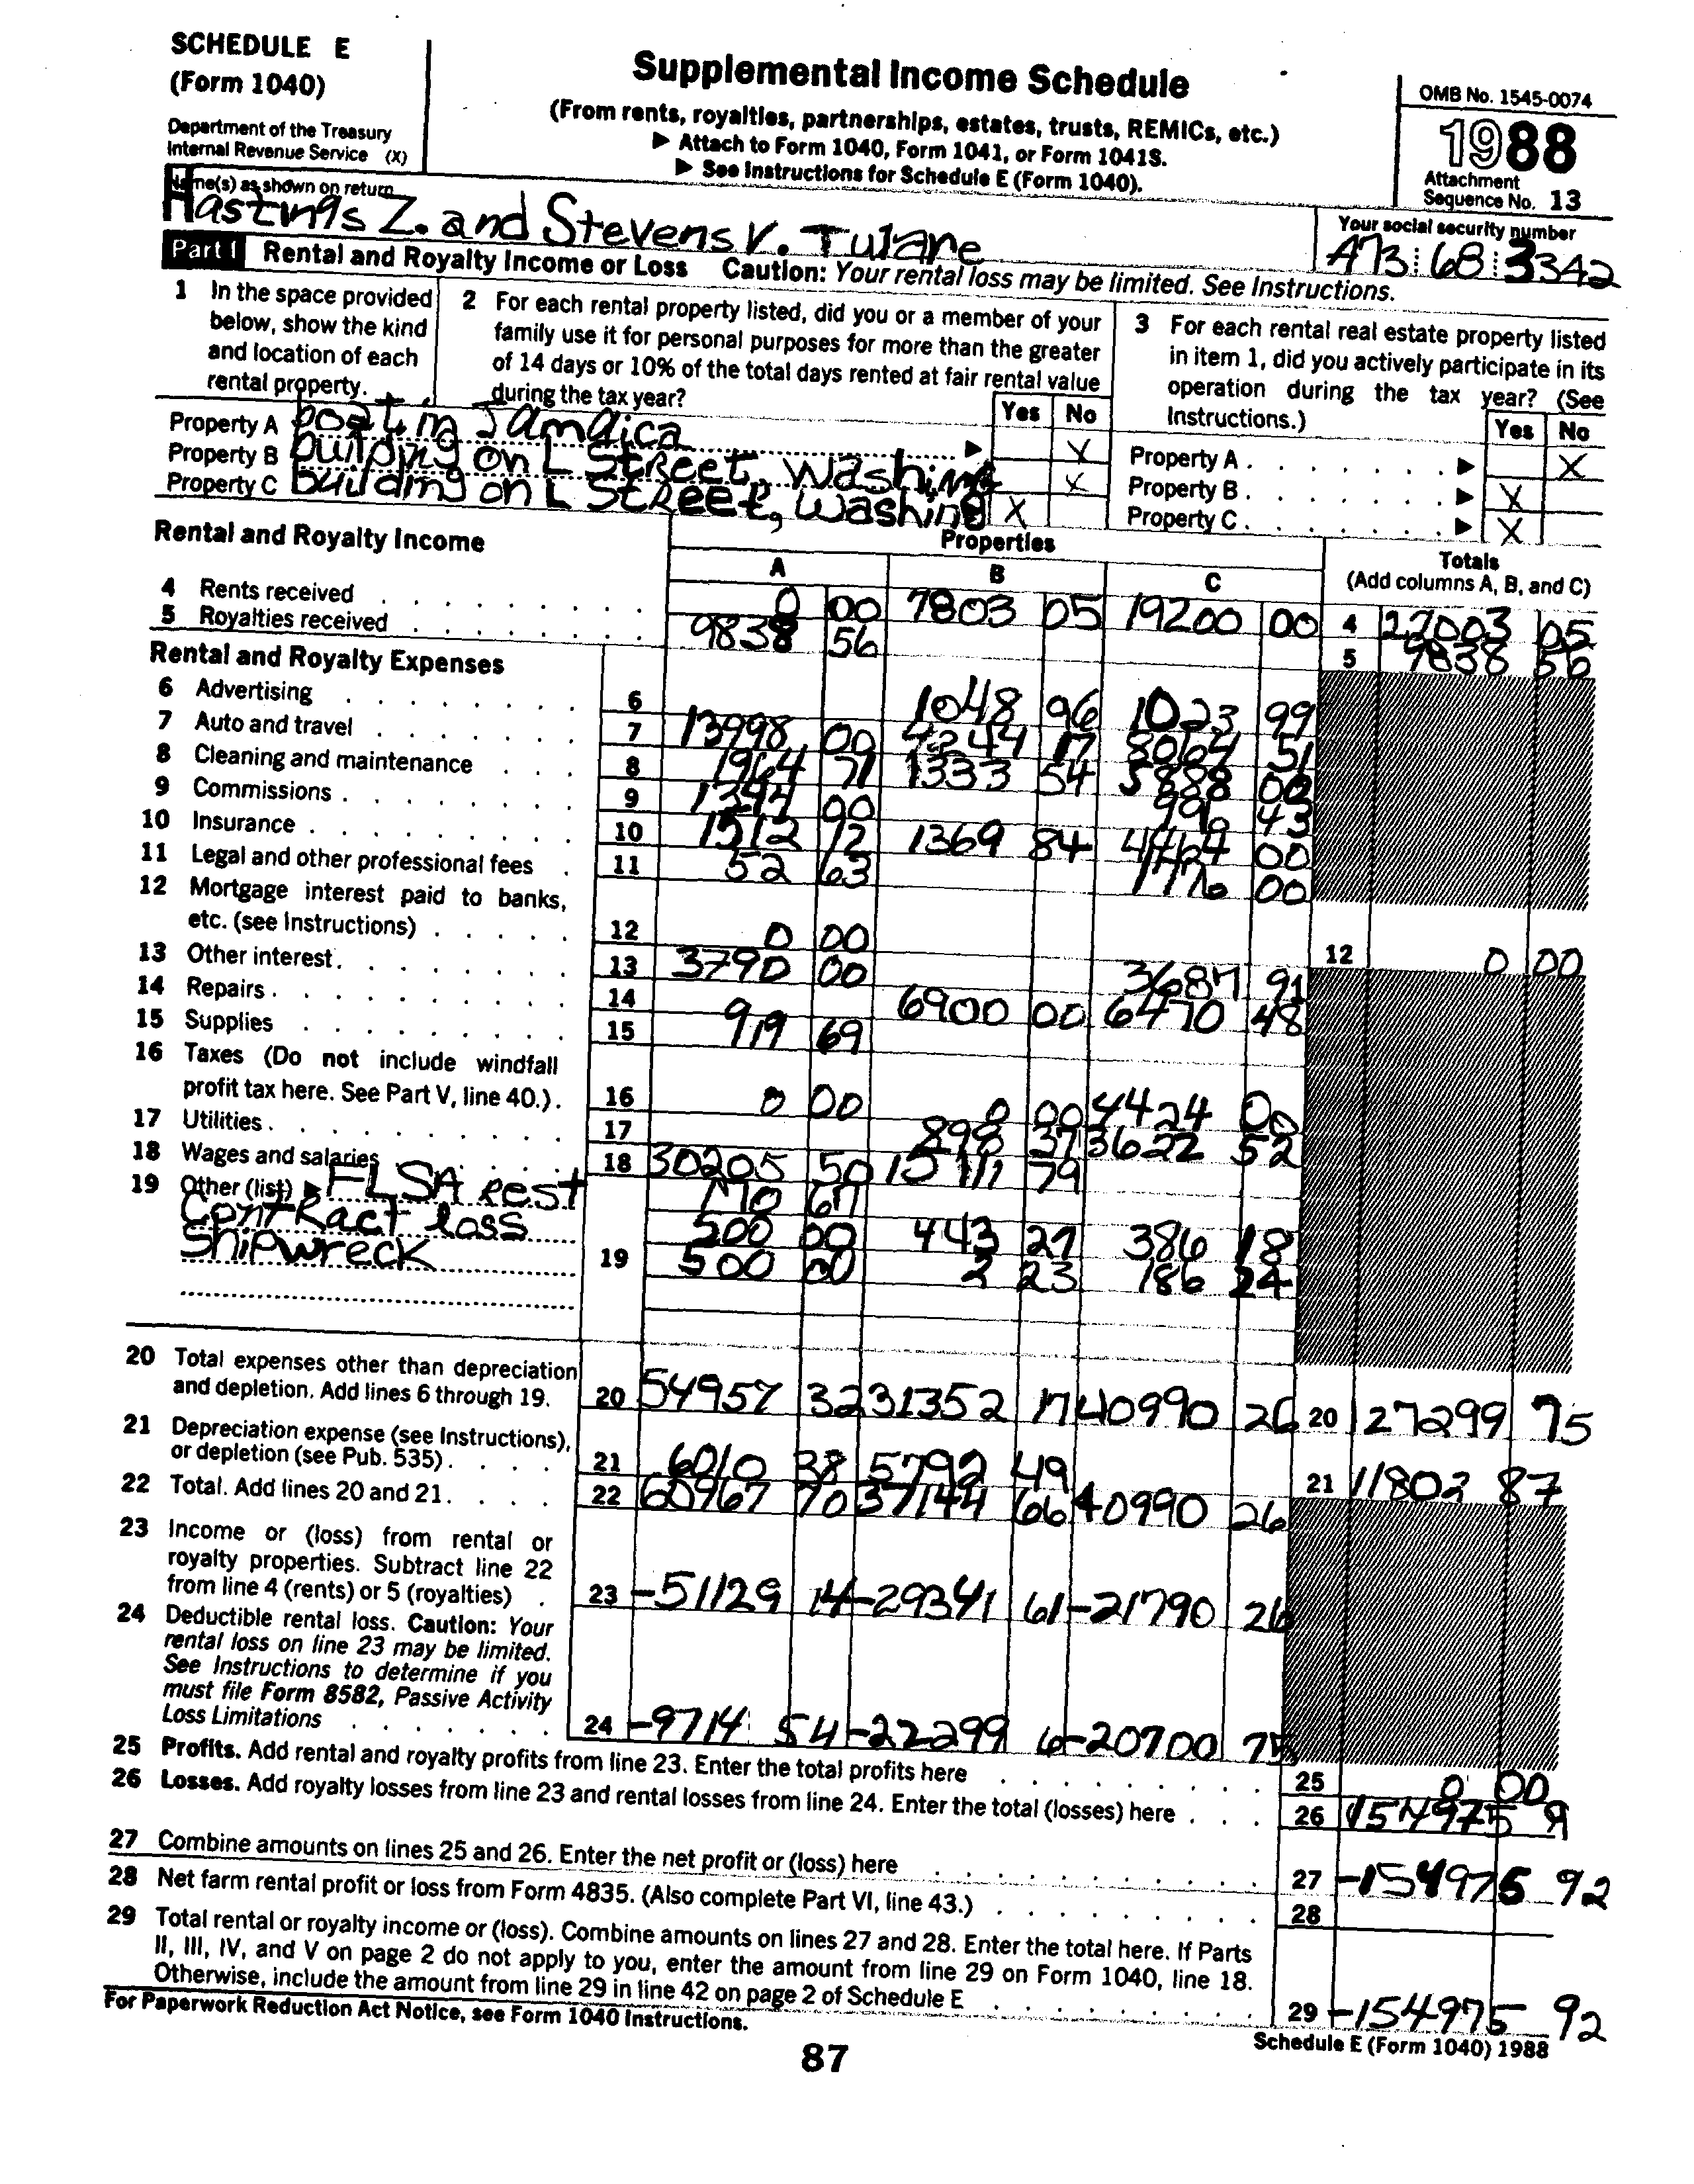 SCHEDULE E
(Form 1040)
Department of the Treasury
Internal Revenue Service (X)
Supplemental Income Schedule
(From rents, royalties, partnerships, estates, trusts, REMICs, etc.)
▶ Attach to Form 1040, Form 1041, or Form 1041S.
▶ See Instructions for Schedule E (Form 1040).
OMB No. 1545-0074
1988
Attachment
Sequence No. 13
Name(s) as shown on return
Hastings Z. and Stevens V. Tulane
Your social security number
473 68 3342
Part I Rental and Royalty Income or Loss Caution: Your rental loss may be limited. See Instructions.
1 In the space provided below, show the kind and location of each rental property.
2 For each rental property listed, did you or a member of your family use it for personal purposes for more than the greater of 14 days or 10% of the total days rented at fair rental value during the tax year?
3 For each rental real estate property listed in item 1, did you actively participate in its operation during the tax year? (See Instructions.)
Yes No Yes No
Property A boat in Jamaica ▶ X Property A ▶ X
Property B building on L Street, Washing X Property B ▶ X
Property C building on L Street, Washing X Property C ▶ X
Rental and Royalty Income
Properties
A B C
Totals
(Add columns A, B, and C)
4 Rents received 0 00 7803 05 19200 00 4 27003 05
5 Royalties received 9838 56 5 9838 56
Rental and Royalty Expenses
6 Advertising 6 1048 96 1023 99
7 Auto and travel 7 13998 00 4244 17 8064 51
8 Cleaning and maintenance 8 1964 71 1333 54 5888 00
9 Commissions 9 00 996 43
10 Insurance 10 1512 12 1369 84 4464 00
11 Legal and other professional fees 11 52 63 1776 00
12 Mortgage interest paid to banks, etc. (see Instructions) 12 0 00 12 0 00
13 Other interest 13 3790 00 3687 91
14 Repairs 14 6900 00 6470 48
15 Supplies 15 919 69
16 Taxes (Do not include windfall profit tax here. See Part V, line 40.) 16 0 00 0 00 4424 00
17 Utilities 17 898 37 3622 52
18 Wages and salaries 18 30205 50 15111 79
19 Other (list) ▶ FLSA Rest 67
Contract loss 500 00 443 27 386 18
Shipwreck 19 500 00 2 23 186 24
20 Total expenses other than depreciation and depletion. Add lines 6 through 19. 20 54957 32 31352 17 40990 26 20 127299 75
21 Depreciation expense (see Instructions), or depletion (see Pub. 535) 21 6010 38 5792 49 21 11802 87
22 Total. Add lines 20 and 21 22 60967 70 37144 66 40990 26
23 Income or (loss) from rental or royalty properties. Subtract line 22 from line 4 (rents) or 5 (royalties) 23 -51129 14 -29341 61 -21790 26
24 Deductible rental loss. Caution: Your rental loss on line 23 may be limited. See Instructions to determine if you must file Form 8582, Passive Activity Loss Limitations 24 -9714 54 -22299 6 -20700 75
25 Profits. Add rental and royalty profits from line 23. Enter the total profits here 25 0 00
26 Losses. Add royalty losses from line 23 and rental losses from line 24. Enter the total (losses) here 26 154975 9
27 Combine amounts on lines 25 and 26. Enter the net profit or (loss) here 27 -154975 92
28 Net farm rental profit or loss from Form 4835. (Also complete Part VI, line 43.) 28
29 Total rental or royalty income or (loss). Combine amounts on lines 27 and 28. Enter the total here. If Parts II, III, IV, and V on page 2 do not apply to you, enter the amount from line 29 on Form 1040, line 18. Otherwise, include the amount from line 29 in line 42 on page 2 of Schedule E 29 -154975 92
For Paperwork Reduction Act Notice, see Form 1040 Instructions.
Schedule E (Form 1040) 1988
87